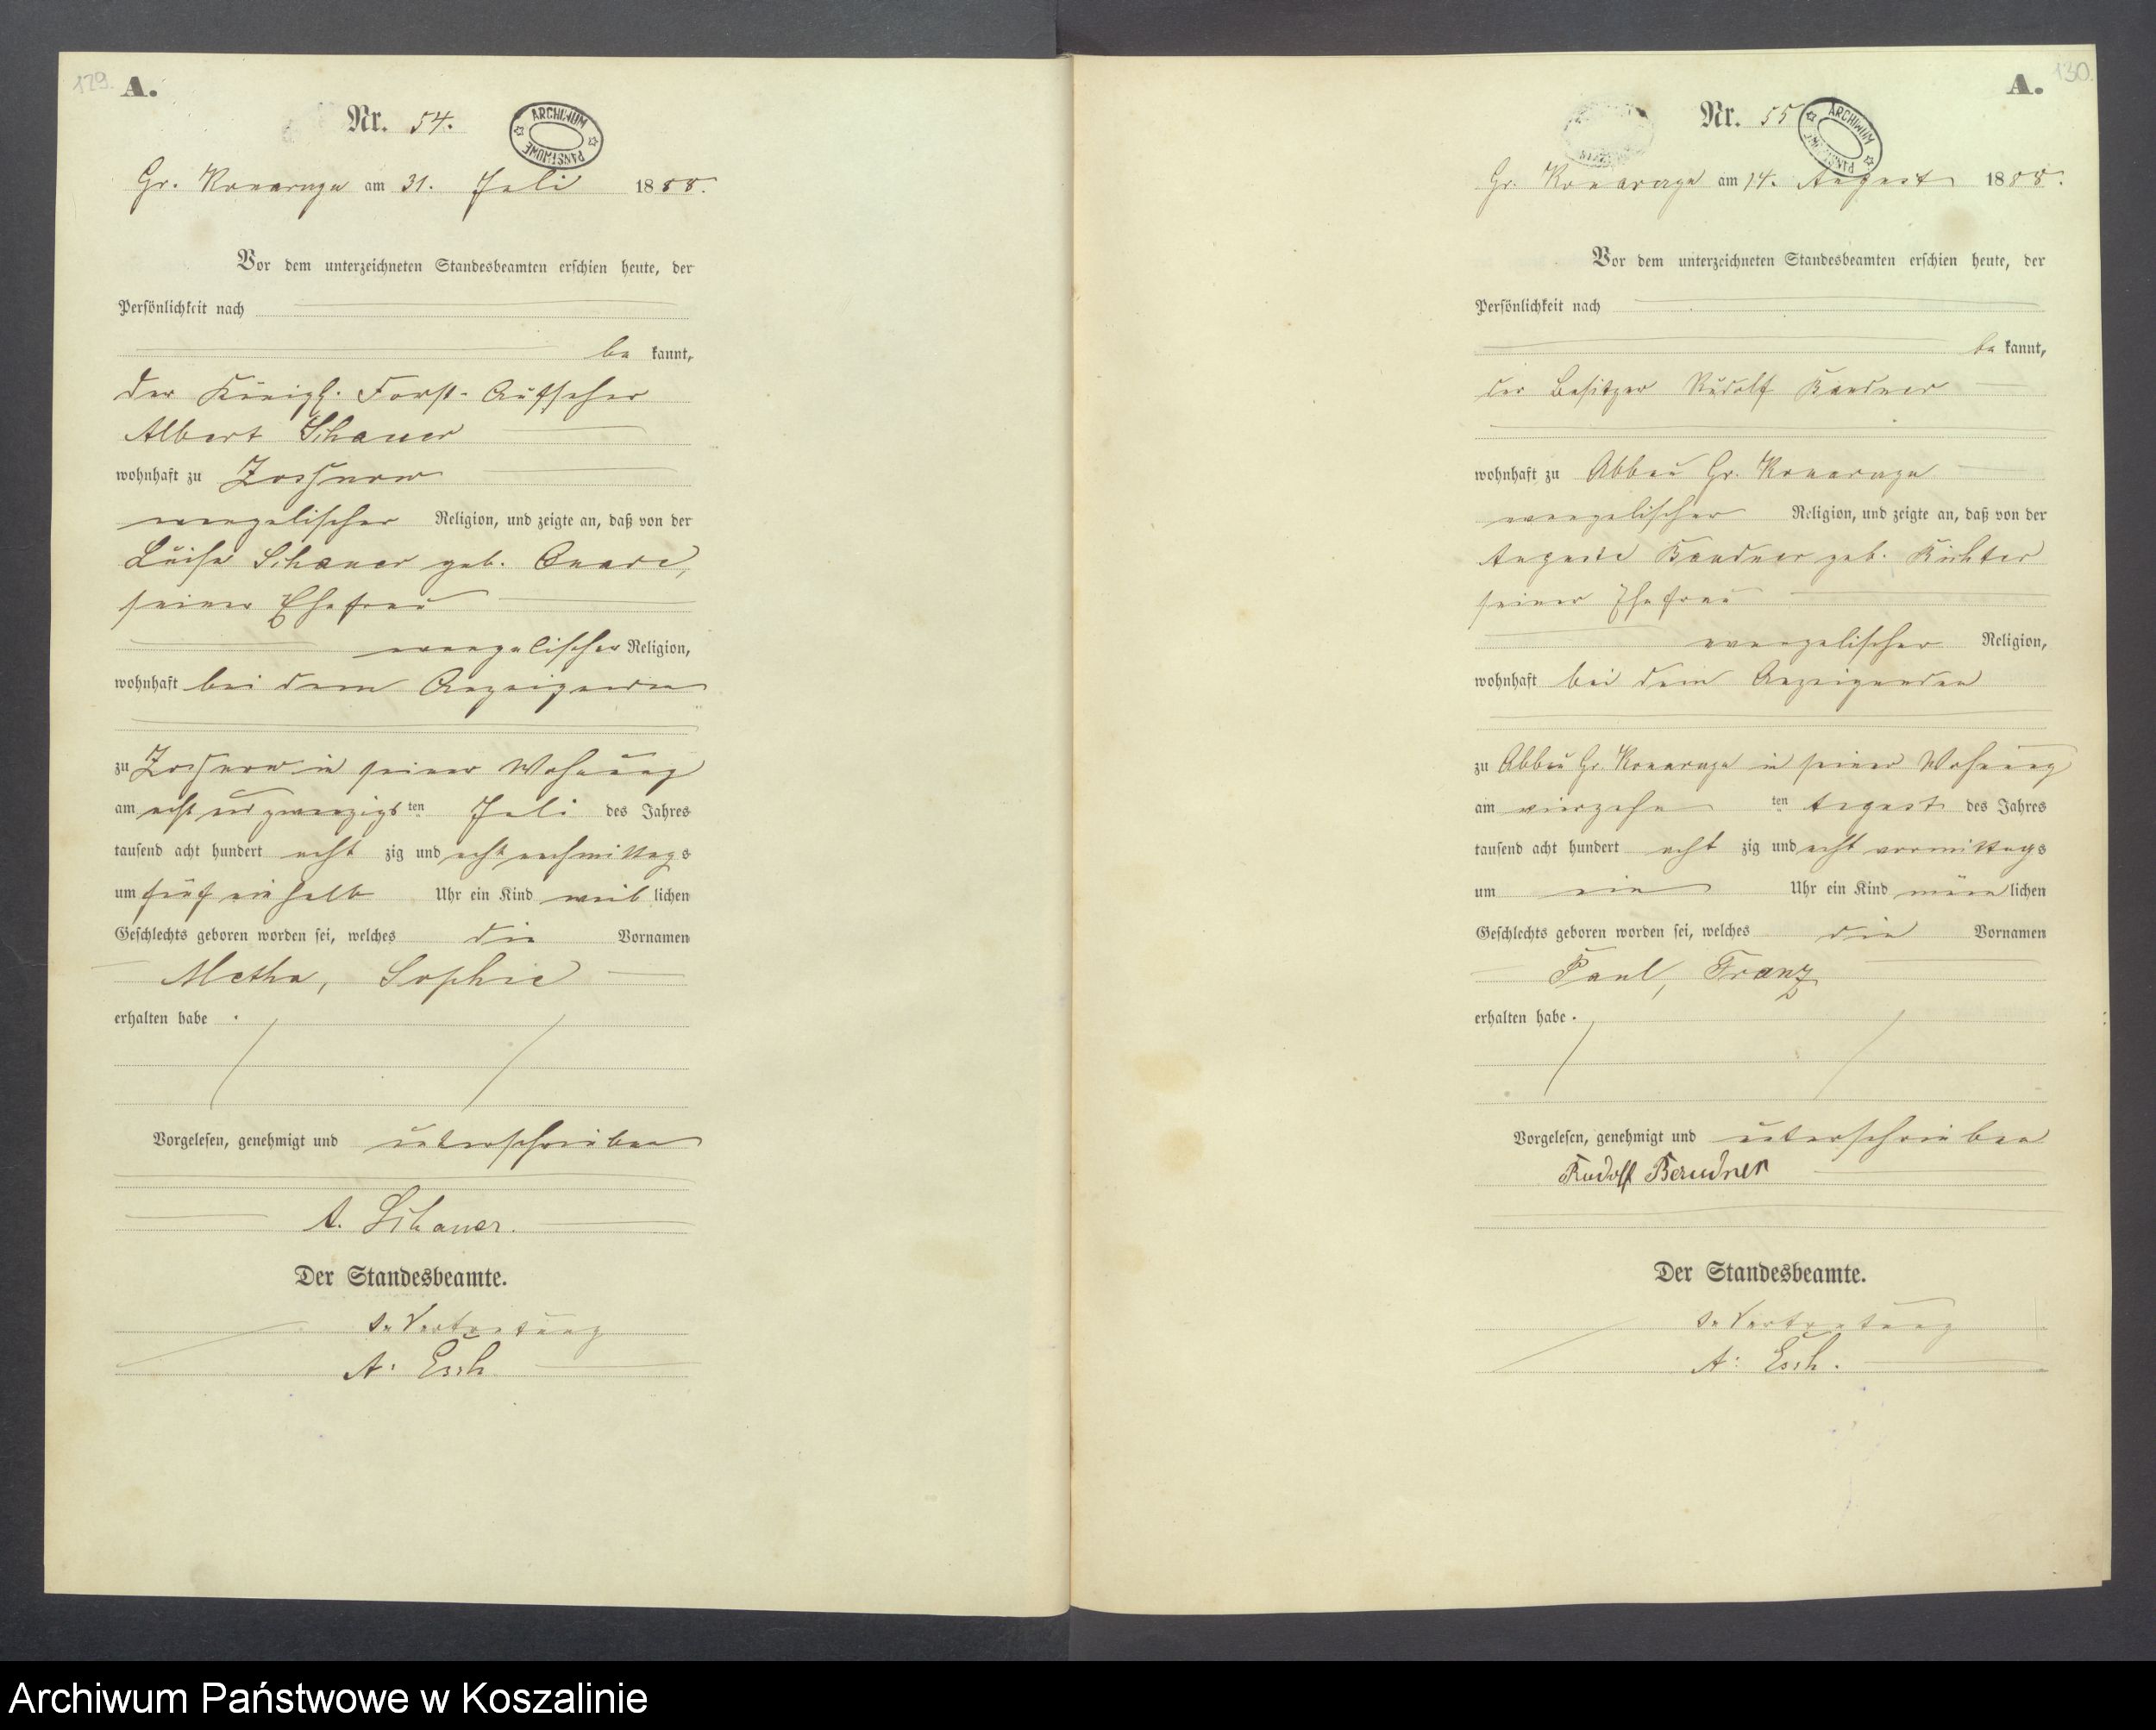 129.
A.
Nr. 54.
ARCHIWUM PAŃSTWOWE
Gr. Konarczyn am 31. Juli 1888.
Vor dem unterzeichneten Standesbeamten erschien heute, der
Persönlichkeit nach
be kannt,
der Königl. Forst-Aufseher
Albert Schauer
wohnhaft zu
evangelischer Religion, und zeigte an, daß von der
Luise Schauer geb.
seiner Ehefrau
evangelischer Religion,
wohnhaft bei dem Anzeigenden
zu in seiner Wohnung
am acht und zwanzigsten Juli des Jahres
tausend acht hundert acht zig und acht nachmittags
um fünf ein halb Uhr ein Kind weib lichen
Geschlechts geboren worden sei, welches die Vornamen
Metha, Sophie
erhalten habe.
Vorgelesen, genehmigt und unterschrieben
A. Schauer.
Der Standesbeamte.
In Vertretung
A. Esch
A.
130.
Nr. 55
ARCHIWUM
Gr. am 14. August 1888.
Vor dem unterzeichneten Standesbeamten erschien heute, der
Persönlichkeit nach
be kannt,
der Besitzer Rudolf
wohnhaft zu Abbau Gr.
evangelischer Religion, und zeigte an, daß von der
Auguste geb. Richter
seiner Ehefrau
evangelischer Religion,
wohnhaft bei dem Anzeigenden
zu Abbau Gr. in seiner Wohnung
am vierzehn ten August des Jahres
tausend acht hundert acht zig und acht vormittags
um ein Uhr ein Kind männ lichen
Geschlechts geboren worden sei, welches die Vornamen
Paul, Franz
erhalten habe.
Vorgelesen, genehmigt und unterschrieben
Rudolf
Der Standesbeamte.
In Vertretung
A. Esch.
Archiwum Państwowe w Koszalinie